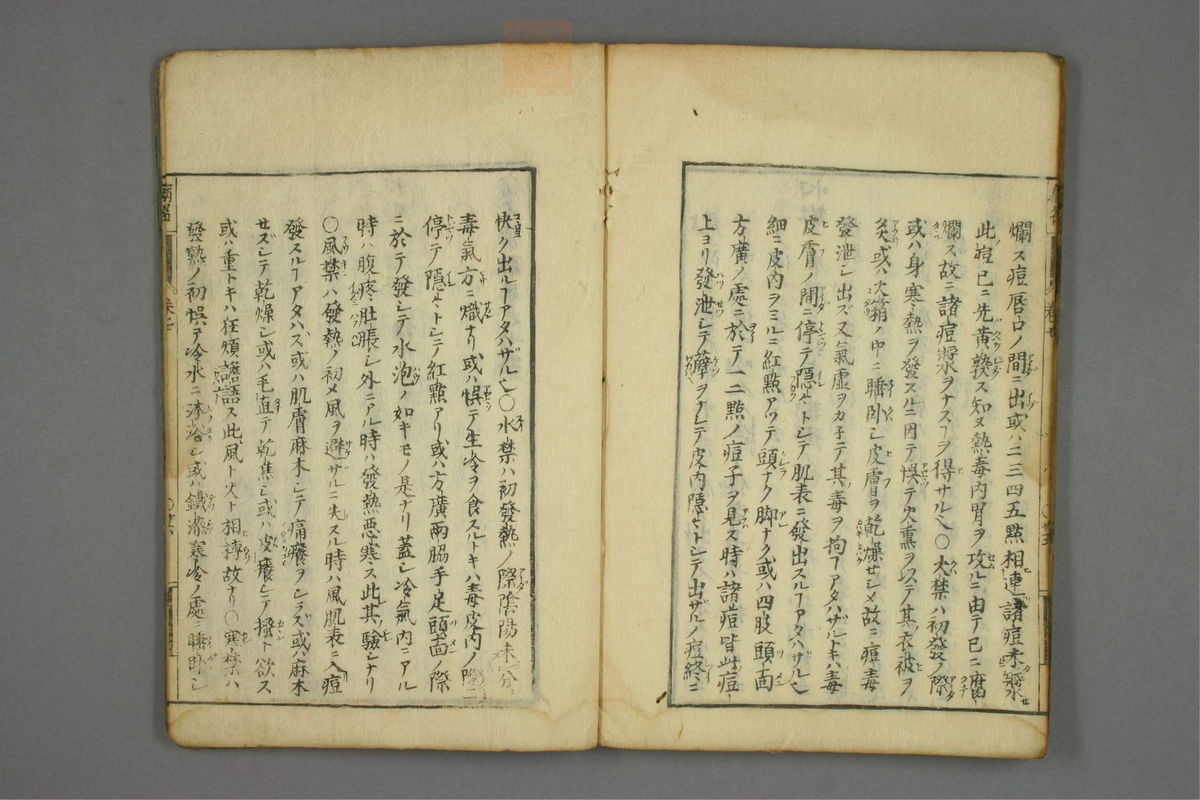 爛ス痘唇口ノ間ニ出或ハ二三四五點相連諸痘未漿
此痘已ニ先黃熟ス知ヌ熱毒内胃ヲ攻ルニ由テ已ニ腐
爛ス故ニ諸痘漿ヲナスヿヲ得サルヘ〇火禁ハ初發ノ際
或ハ身寒熱ヲ發スルニ因テ悞テ火熏ヲ以テ其衣被ヲ
炙或ハ火箱ノ中ニ睡卧シ皮膚ヲ乾燥せシメ故ニ痘毒
發泄シ出ズ又氣虚ヲカ子テ其毒ヲ拘フアタハザルトキハ毒
皮膚ノ間ニ停テ隱々トシテ肌表ニ發出スルヿアタハザルヘ
細ニ皮内ヲミルニ紅點アツテ頭ナク脚ナク或ハ四肢頭面
方廣ノ處ニ於テ一二點ノ痘子ヲ見ス時ハ諸痘皆此痘
上ヨリ發泄シテヲナシテ皮内隱々トシテ出ザルノ痘終ニ
快ク出ルヿアタハザルヘ〇水禁ハ初發熱ノ際陰陽未レ分
毒氣方ニ熾ナリ或ハ悞テ生冷ヲ食スルトキハ毒皮内ノ際ニ
停テ隱々トシテ紅點アリ或ハ方廣兩脇手足頭面ノ際
ニ於テ發シテ水泡ノ如キモノ是ナリ蓋シ冷氣内ニアル
時ハ腹疼肚脹シ外ニアル時ハ發熱惡寒ス此其驗シナリ
〇風禁ハ發熱ノ初メ風ヲ避ザルニ失スル時ハ風肌表ニ入痘
發スルヿアタハズ或ハ肌膚麻木シテ痛癢ヲシラズ或ハ麻木
せズシテ乾燥シ或ハ毛直テ乾焦シ或ハ皮癢シテ搔ト欲ス
或ハ重トキハ狂煩譫語ス此風ト火ト相摶故ナリ〇寒禁ハ
發熱ノ初悞テ冷水ニ沐浴シ或ハ鐵漆寒冷ノ處ニ睡卧シ